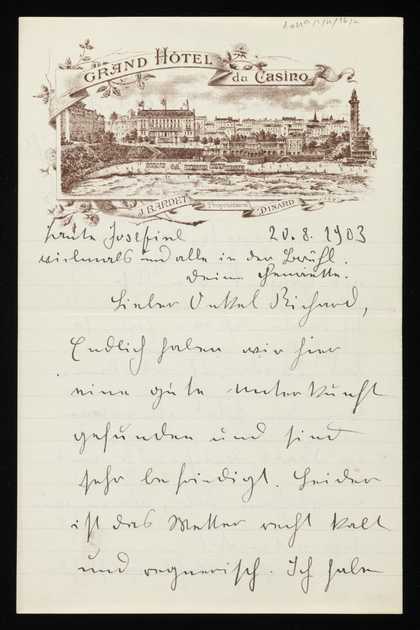 GRAND HÔTEL du Casino
J. BARDET Propriétaire DINARD
20. 8. 1903
vielmals und alle in der Brühl.
Deine Henriette.
Lieber Onkel Richard,
Endlich haben wir hier
eine gute Unterkunft
gefunden und sind
sehr befriedigt. Leider
ist das Wetter recht kalt
und regnerisch. Ich habe